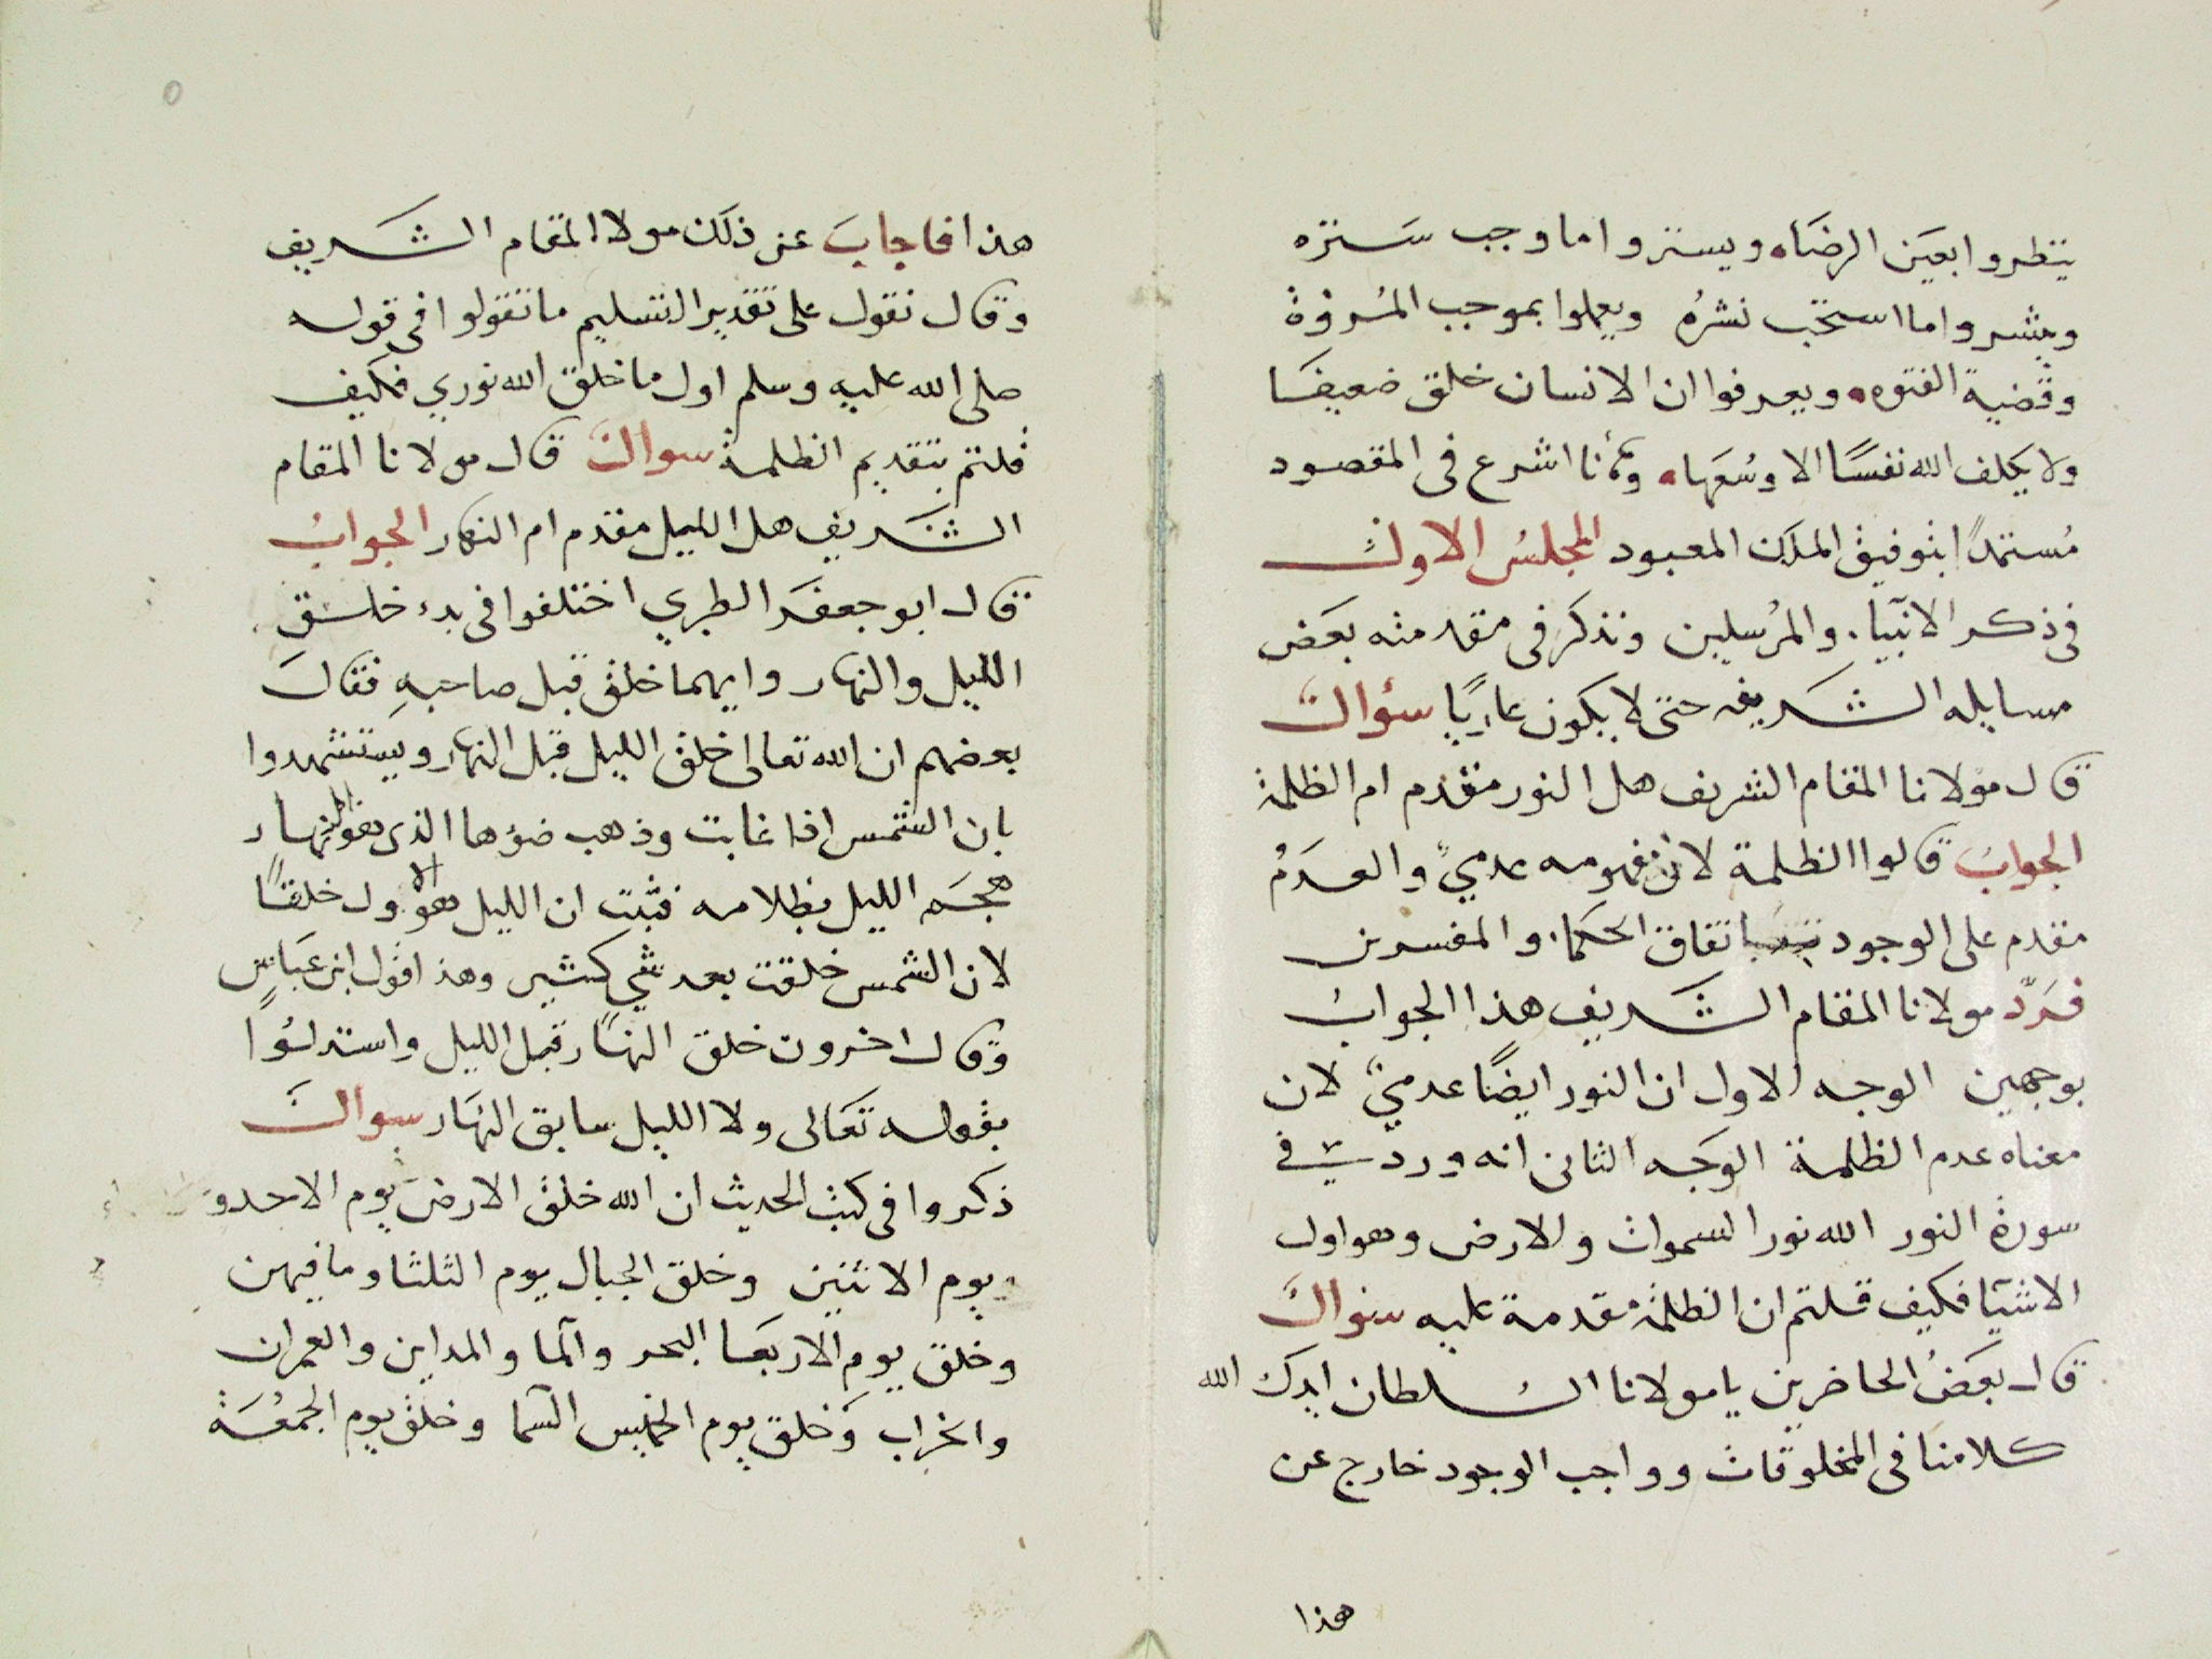 ينظروا بعين الرضاه ويستروا ما وجب ستره
وينشروا ما استحب نشره ويعملوا بموجب المروة
وقضية الفتوه ويعرفوا ان الانسان خلق ضعيفا
ولا يكلف الله نفسا الا وسعها وها انا اشرع فى المقصود
مستمدا بتوفيق الملك المعبود المجلس الاول
فى ذكر الانبياء والمرسلين ونذكر فى مقدمته بعض
مسايله الشريفه حتى لا يكون عاريا سؤال
قال مولانا المقام الشريف هل النور مقدم ام الظلمة
الجواب قالوا الظلمة لان مفهومه عدمي والعدم
مقدم على الوجود باتفاق الحكماء والمفسرين
فرد مولانا المقام الشريف هذا الجواب
بوجهين الوجه الاول ان النور ايضا عدمي لان
معناه عدم الظلمة الوجه الثانى انه ورد فى
سورة النور الله نور السموات والارض وهو اول
الاشيا فكيف قلتم ان الظلمة مقدمة عليه سؤال
قال بعض الحاضرين يا مولانا السلطان ايدك الله
كلامنا فى المخلوقات وواجب الوجود خارج عن
هذا
هذا فاجاب عن ذلك مولا المقام الشريف
وقال نقول على تقدير التسليم ما تقولوا فى قوله
صلى الله عليه وسلم اول ما خلق الله نوري فكيف
قلتم بتقديم الظلمة سوال قال مولانا المقام
الشريف هل الليل مقدم ام النهار الجواب
قال ابو جعفر الطبري اختلفوا فى بدء خلق
الليل والنهار وايهما خلق قبل صاحبه فقال
بعضهم ان الله تعالى خلق الليل قبل النهار ويستشهدوا
بان الشمس اذا غابت وذهب ضؤها الذى هو النهار
هجم الليل بظلامه فثبت ان الليل هو الاول خلقا
لان الشمس خلقت بعد شي كثير وهذا قول ابن عباس
وقال اخرون خلق النهار قبل الليل واستدلوا
بقوله تعالى ولا الليل سابق النهار سوال
ذكروا فى كتب الحديث ان الله خلق الارض يوم الاحد و
يوم الاثنين وخلق الجبال يوم الثلثا وما فيهن
وخلق يوم الاربعا البحر والما والمداين والعمران
والخراب وخلق يوم الخميس السما وخلق يوم الجمعة